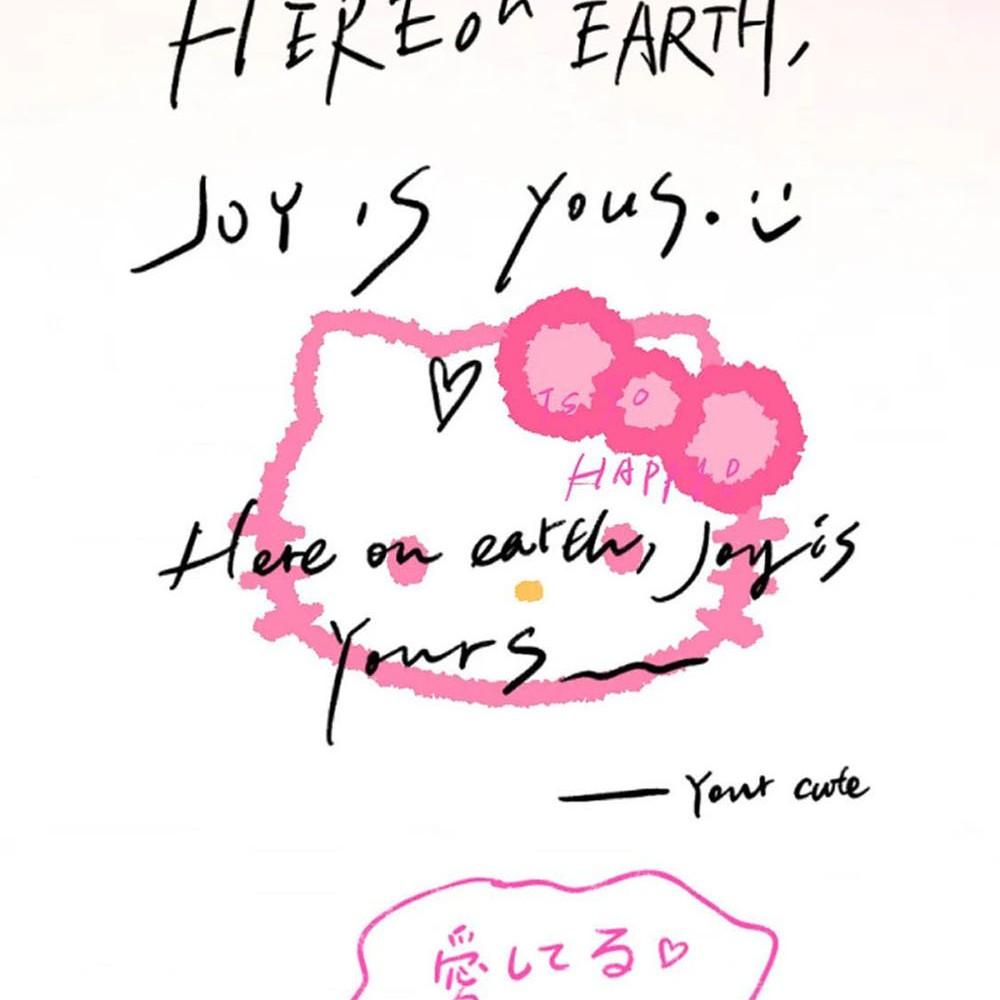 HERE on EARTH,
JOY is yous. :)
♡
IS O
Here on earth, Joy is
Yours
— Your cute
愛してる♡